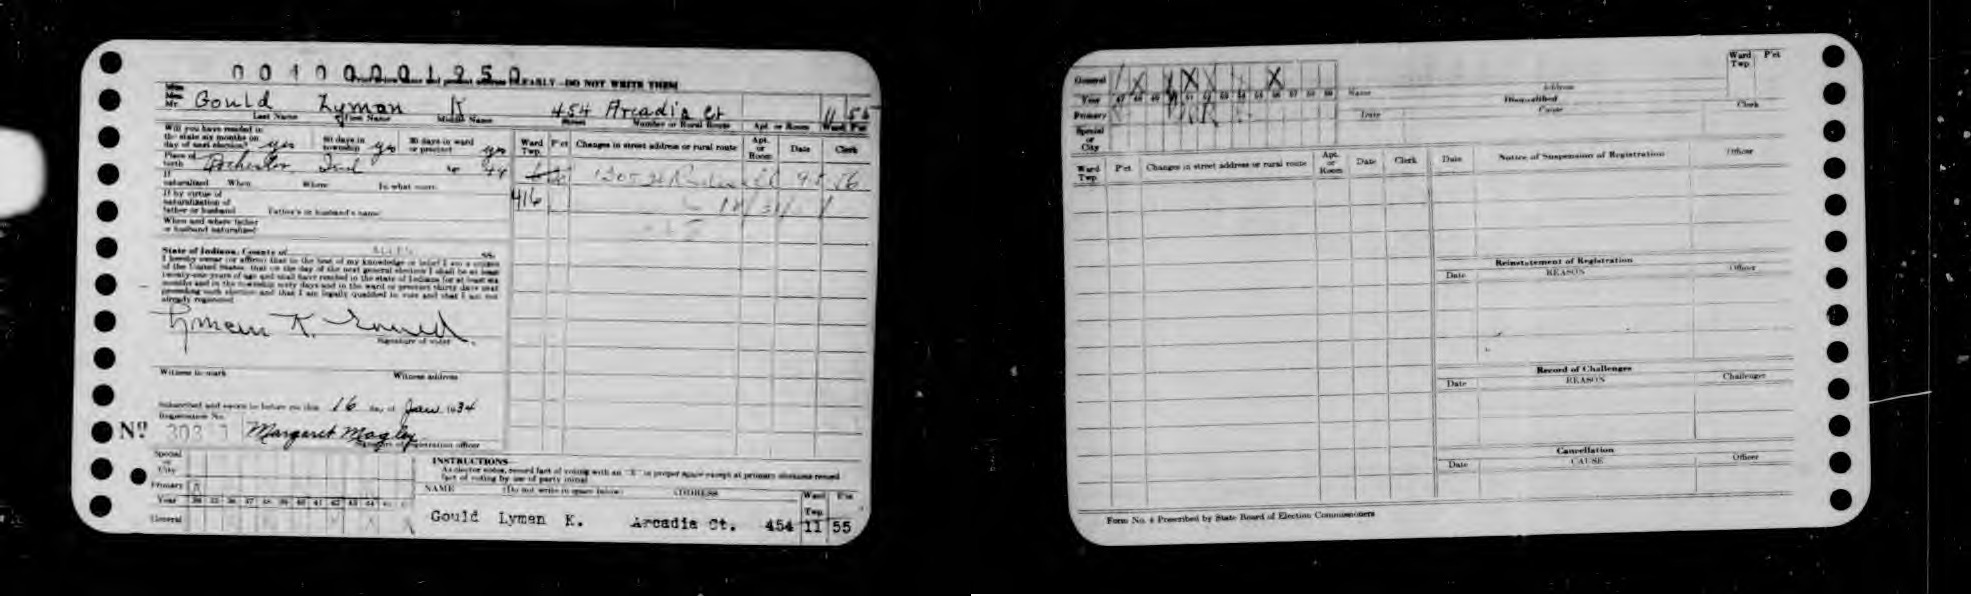 00100001950 EARLY - DO NOT WRITE THEM
Miss
Mrs.
Mr. Gould Lyman K 454 Arcadia Ct 11 55
Last Name First Name Middle Name Street Number or Rural Route Apt. or Room Ward P'ct
Will you have resided in
the state six months on
day of next election? yes 60 days in
township yes 30 days in ward
or precinct yes
Place of
birth Rochester Ind Age 44
If
naturalized When Where In what court
If by virtue of
naturalization of
father or husband Father's or husband's name
When and where father
or husband naturalized
Ward
Twp. P'ct Changes in street address or rural route Apt.
or
Room Date Clerk
416
State of Indiana, County of ss.
I hereby swear (or affirm) that to the best of my knowledge or belief I am a citizen
of the United States, that on the day of the next general election I shall be at least
twenty-one years of age and shall have resided in the state of Indiana for at least six
months and in the township sixty days and in the ward or precinct thirty days next
preceding such election and that I am legally qualified to vote and that I am not
already registered
Lyman K. Gould
Signature of voter
Witness to mark Witness address
Subscribed and sworn to before me this 16 day of Jan 1934
Registration No.
Nº Margaret Magley
Signature of registration officer
Special
or
City
Primary
Year
General
INSTRUCTIONS
As elector votes, record fact of voting with an "X" in proper space except at primary elections record
fact of voting by use of party initial
NAME (Do not write in space below) ADDRESS Ward
Twp. P'ct
Gould Lyman K. Arcadia Ct. 454 11 55
General
Year 47 48 49 50 51 52 53 54 55 56 57 58 59
Primary
Special
or
City
Name Address
Disqualified
Date Cause Clerk
Ward
Twp. P'ct
Ward
Twp. P'ct Changes in street address or rural route Apt.
or
Room Date Clerk
Date Notice of Suspension of Registration Officer
Reinstatement of Registration
Date REASON Officer
Record of Challenges
Date REASON Challenger
Cancellation
Date CAUSE Officer
Form No. 4 Prescribed by State Board of Election Commissioners